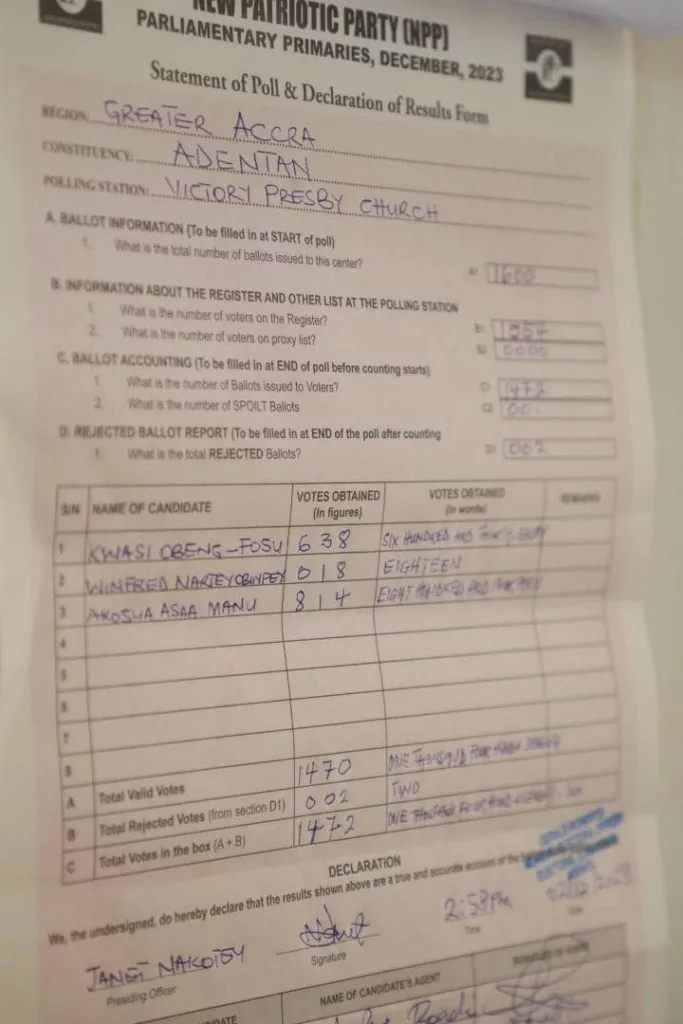 NEW PATRIOTIC PARTY (NPP)
PARLIAMENTARY PRIMARIES, DECEMBER, 2023
Statement of Poll & Declaration of Results Form
REGION: GREATER ACCRA
CONSTITUENCY: ADENTAN
POLLING STATION: VICTORY PRESBY CHURCH
A. BALLOT INFORMATION (To be filled in at START of poll)
1. What is the total number of ballots issued to this center? A1 1600
B. INFORMATION ABOUT THE REGISTER AND OTHER LIST AT THE POLLING STATION
1. What is the number of voters on the Register? B1
2. What is the number of voters on proxy list? B2 0000
C. BALLOT ACCOUNTING (To be filled in at END of poll before counting starts)
1. What is the number of Ballots issued to Voters? 1472
2. What is the number of SPOILT Ballots C2 001
D. REJECTED BALLOT REPORT (To be filled in at END of the poll after counting
1. What is the total REJECTED Ballots? 002
S/N NAME OF CANDIDATE VOTES OBTAINED (In figures) VOTES OBTAINED (in words) REMARKS
1 KWASI OBENG-FOSU 638 SIX HUNDRED AND THIRTY EIGHT
2 WINFRED NARTEY 018 EIGHTEEN
3 AKOSUA ASAA MANU 814 EIGHT HUNDRED AND
4
5
6
7
8
A Total Valid Votes 1470 ONE THOUSAND FOUR
B Total Rejected Votes (from section D1) 002 TWO
C Total Votes in the box (A + B) 1472 ONE THOUSAND FOUR
DECLARATION
We, the undersigned, do hereby declare that the results shown above are a true and accurate account of the
JANET 2:58pm 02/12/2023
Presiding Officer Signature Time Date
NAME OF CANDIDATE'S AGENT